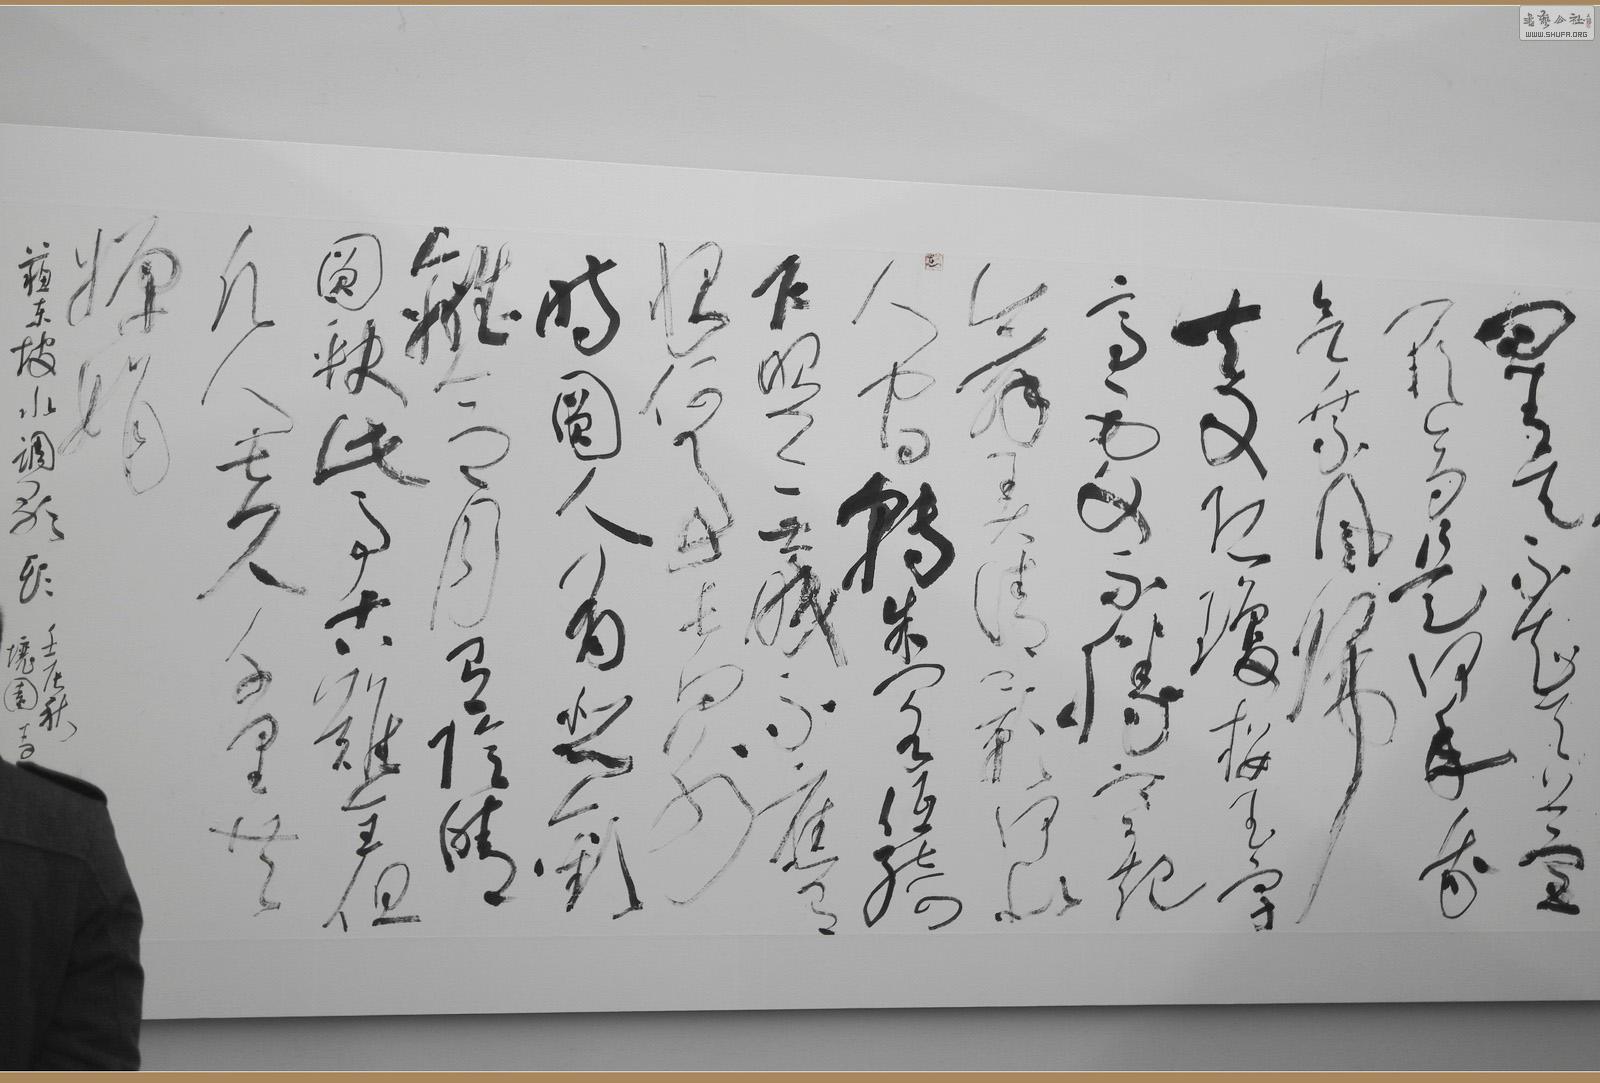 青天不知天上宮
闕今夕是何年我
欲乘風歸
去又恐瓊樓玉宇
高處不勝寒起
舞弄清影何似在
人間轉朱閣低綺
戶照無眠不應有
恨何事長向別
時圓人有悲歡
離合月有陰晴
圓缺此事古難全但
願人長久千里共
嬋娟
蘇東坡水調歌頭
壬辰秋
境園書
書藝公社
WWW.SHUFA.ORG